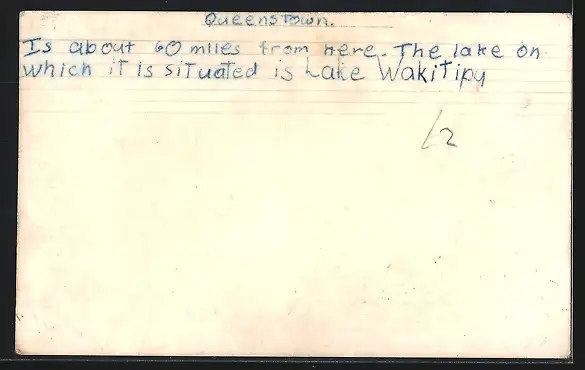 Queenstown.
Is about 60 miles from here. The lake on
which it is situated is Lake Wakitipy
L2